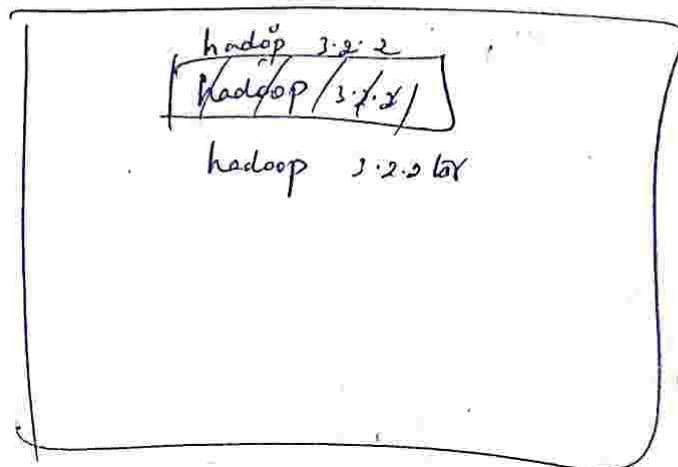 hadoop 3.2.2
hadoop 3.2.2
hadoop 3.2.2 tar